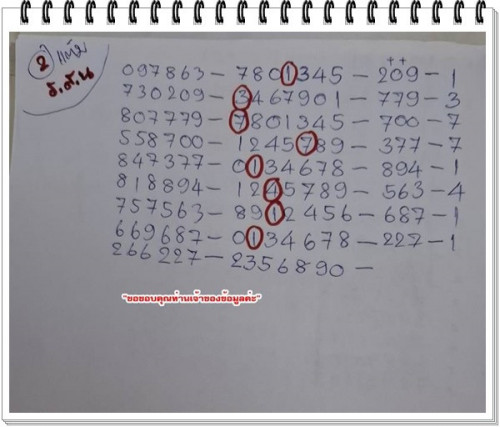 2 แต้ม
ธ.ส.น
++
097863 - 7801345 - 209 - 1
730209 - 3467901 - 779 - 3
807779 - 7801345 - 700 - 7
558700 - 1245789 - 377 - 7
847377 - 0134678 - 894 - 1
818894 - 1245789 - 563 - 4
757563 - 8912456 - 687 - 1
669687 - 0134678 - 227 - 1
266227 - 2356890 -
"ขอขอบคุณท่านเจ้าของข้อมูลค่ะ"